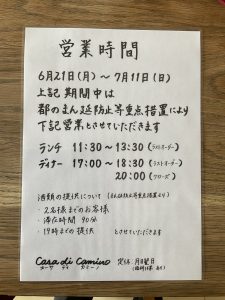 営業時間
6月21日(月)〜7月11日(日)
上記期間中は
都のまん延防止等重点措置により
下記営業とさせていただきます
ランチ 11:30〜13:30(ラストオーダー)
ディナー 17:00〜18:30(ラストオーダー)
20:00(クローズ)
酒類の提供について(まん延防止等重点措置より)
・2名様までのお客様
・滞在時間 90分
・19時までの提供 とさせていただきます
Casa di Camino 定休 月曜日
カーサ ディ カミーノ